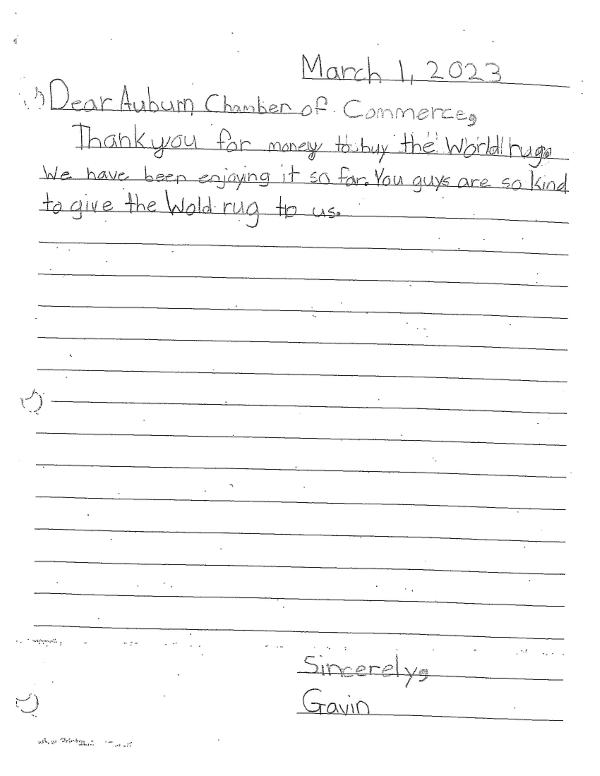 March 1, 2023
Dear Auburn Chamber of Commerce,
Thank you for money to buy the World rug.
We have been enjoying it so far. You guys are so kind
to give the Wold rug to us.
Sincerely,
Gavin